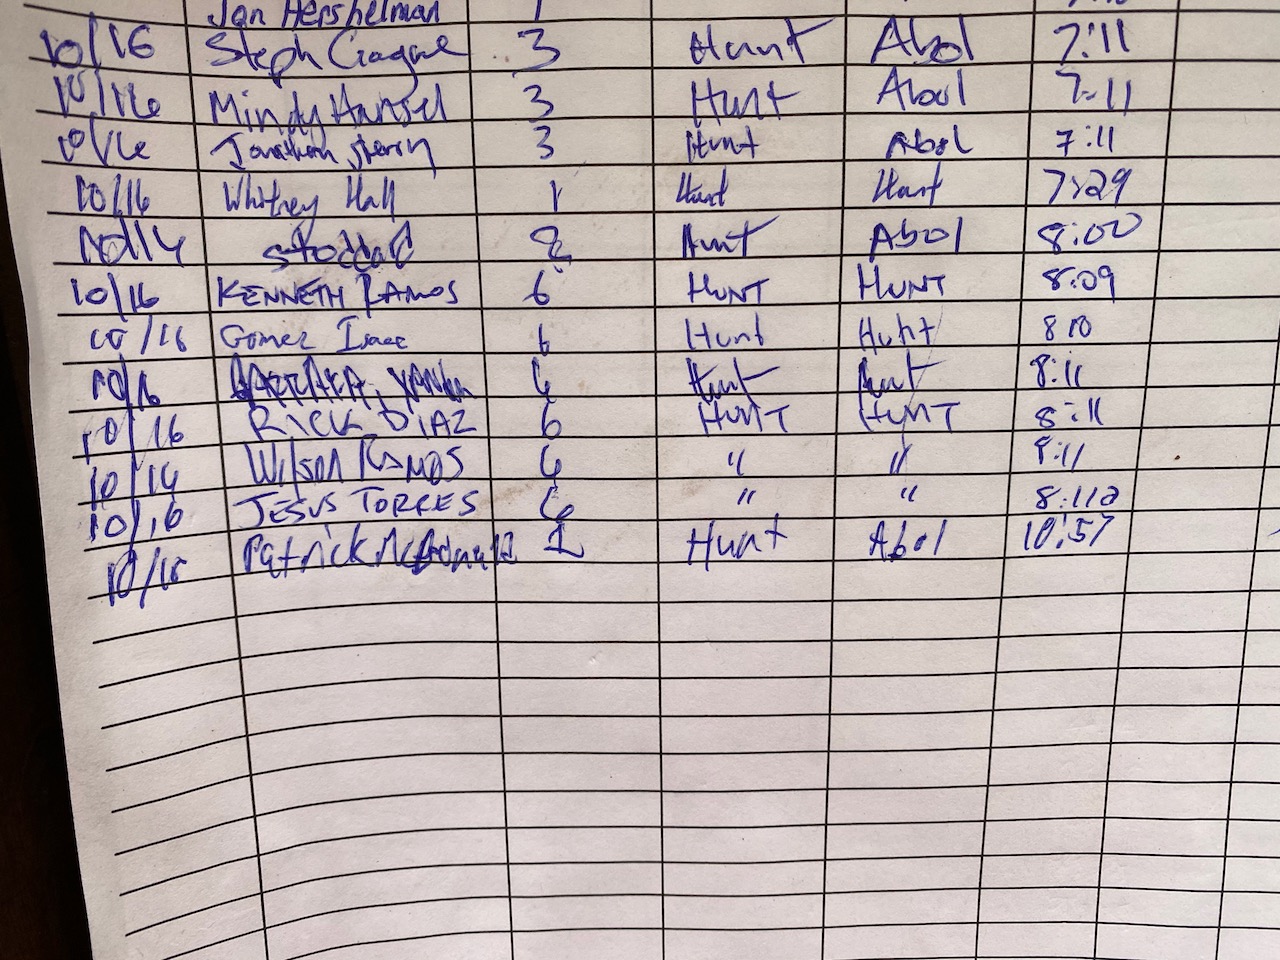 Jon Hershelman 1
10/16 Steph 3 Hunt Abol 7:11
10/16 Mindy Hansel 3 Hunt Abol 7:11
10/16 Jonathan 3 Hunt Abol 7:11
10/16 Whitney Hall 1 Hunt Hunt 7:29
Stoddard 2 Hunt Abol 8:00
10/16 KENNETH RAMOS 6 HUNT HUNT 8:09
10/16 Gomez Isaac 6 Hunt Hunt 8 10
10/16 6 Hunt Hunt 8:11
10/16 RICK DIAZ 6 HUNT HUNT 8:11
10/16 Wilson RAMOS 6 " " 8:11
10/16 JESUS TORRES 6 " "
Patrick McDonald 1 Hunt Abol 10:57